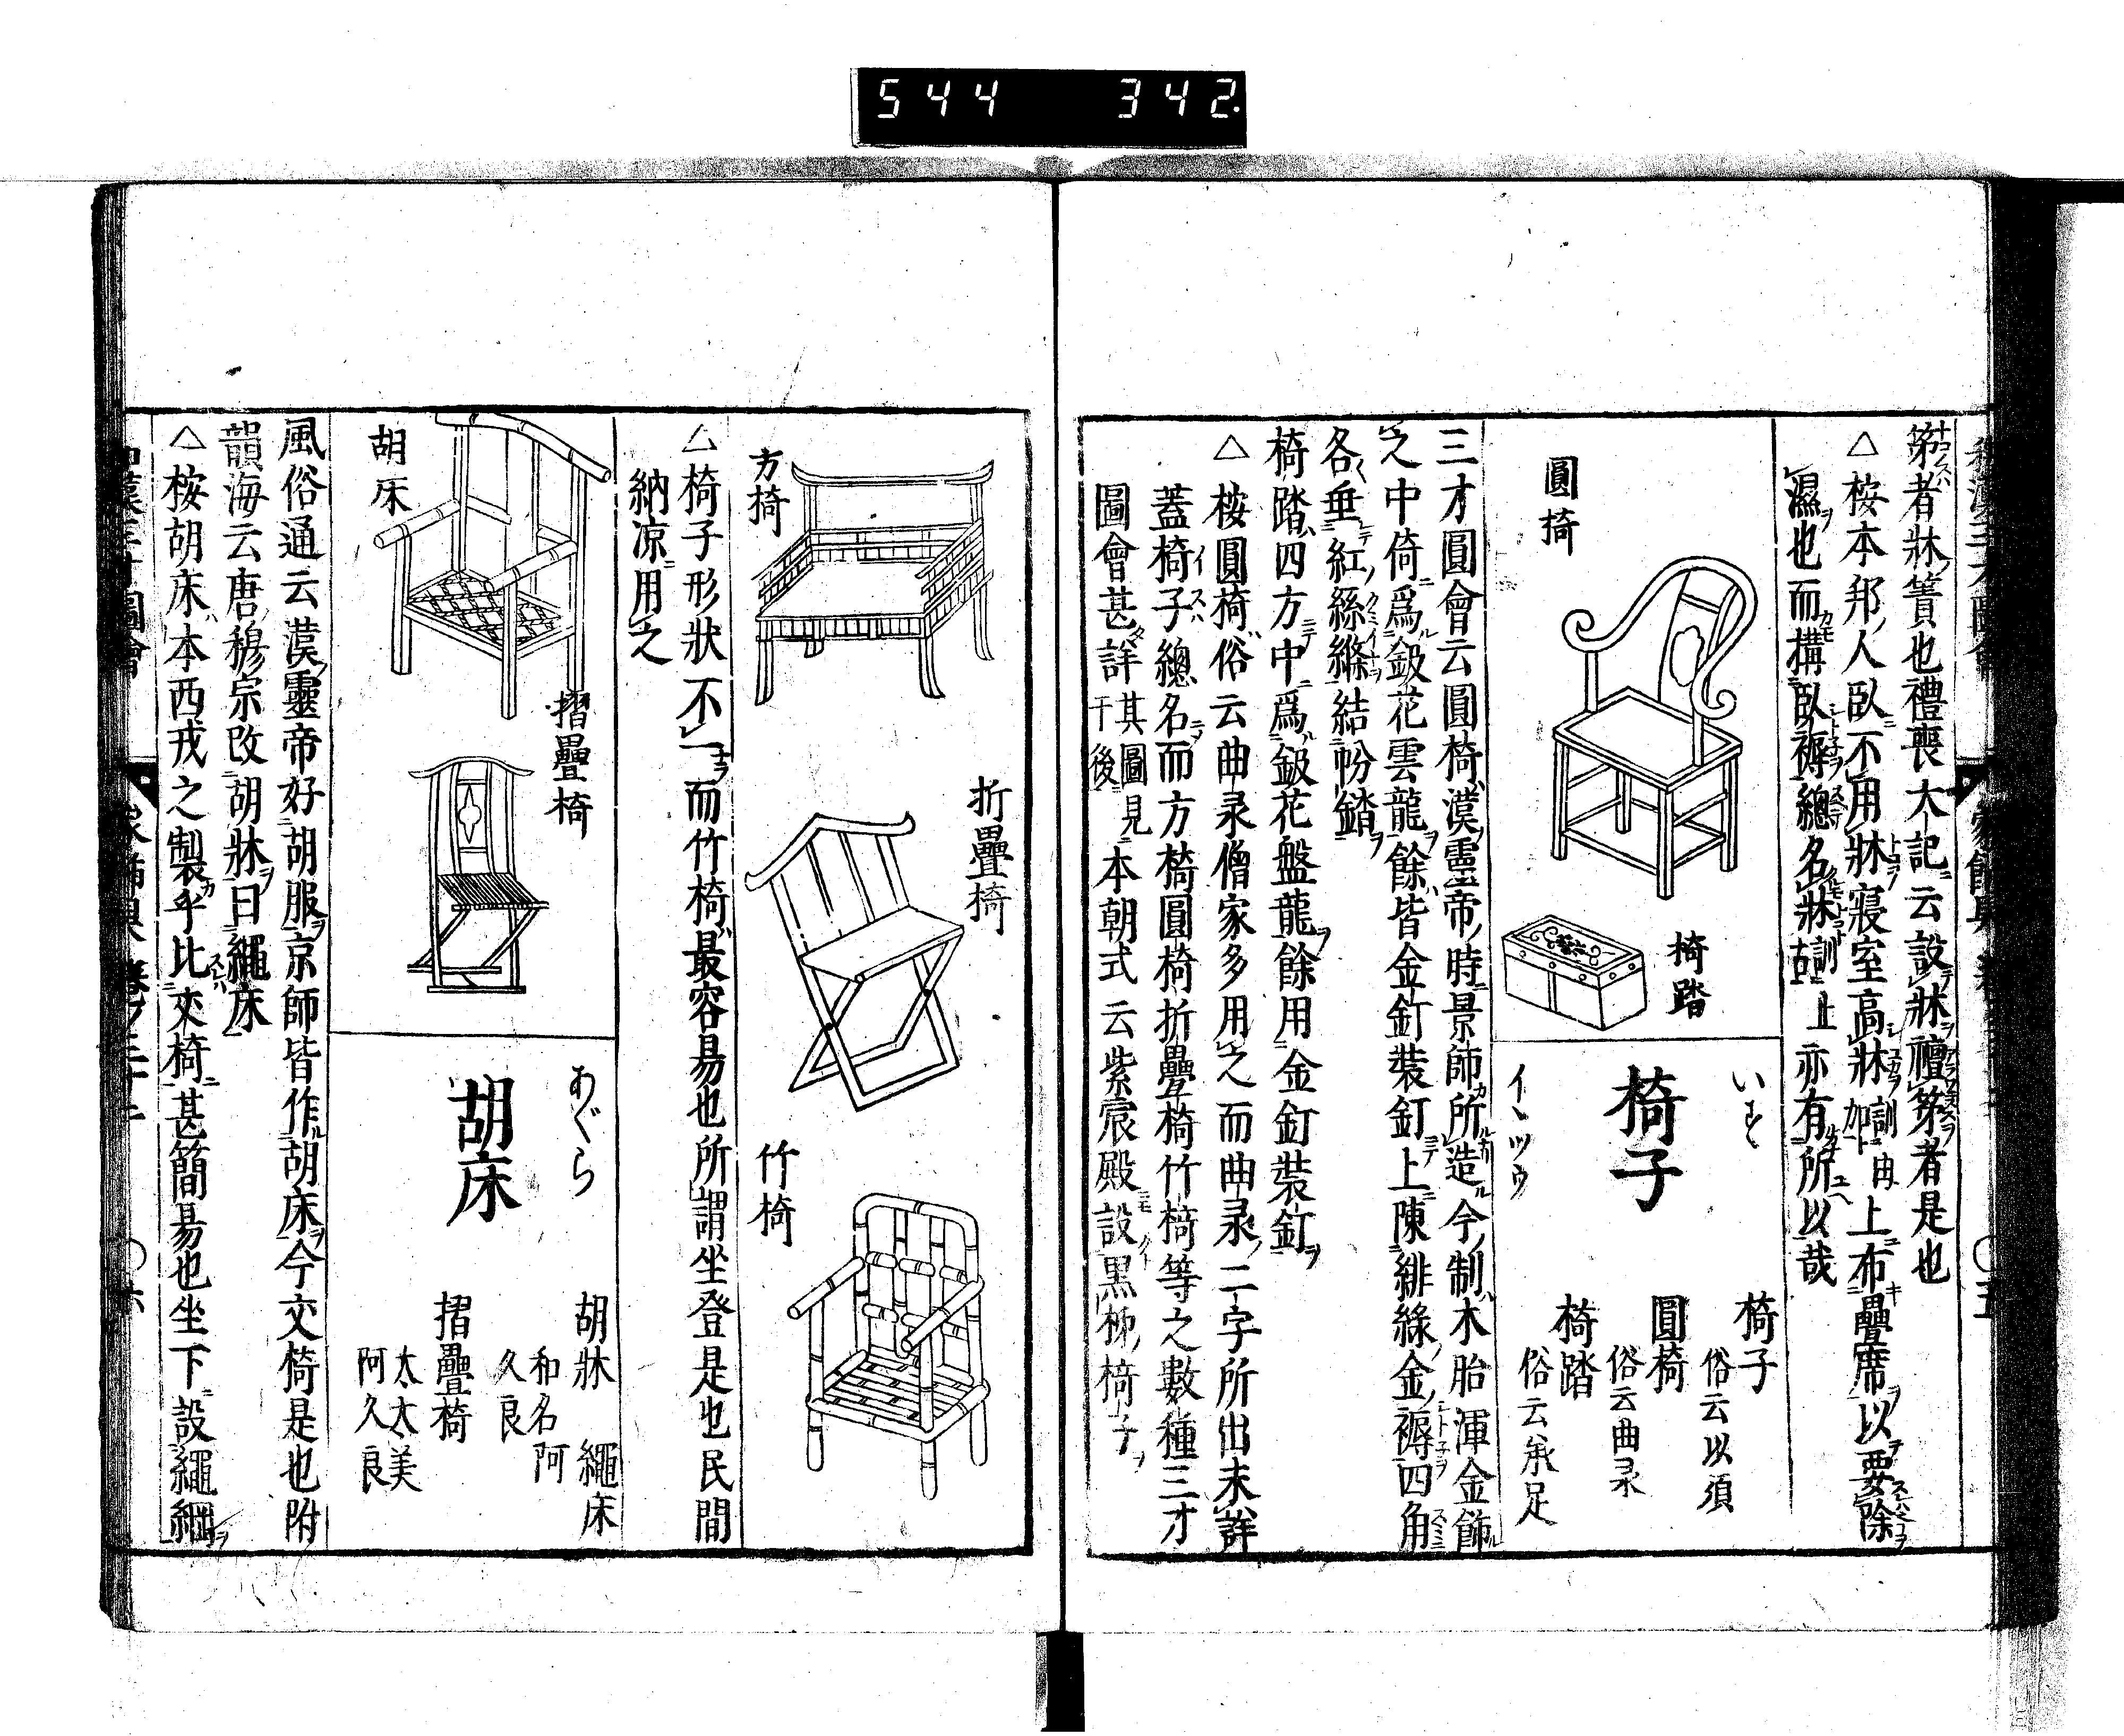 544 342.
第者牀簀也禮喪大記云設牀襢第者是也
△桉本邦人臥不用牀寢室高牀訓加上由上布疊席以要除
濕也而構臥褥總名牀訓古止亦有所以哉
圓椅
椅踏
いす
椅子
イヽツウ
椅子 俗云以須
圓椅 俗云曲彔
椅踏 俗云承足
三才圓會云圓椅漢靈帝時景師所造今制木胎渾金飾
之中倚爲鈒花雲龍餘皆金釘裝釘上陳緋綠金褥四角
各垂紅絲縧結帉錔
椅踏四方中爲鈒花盤龍餘用金釘裝釘
△桉圓椅俗云曲彔僧家多用之而曲彔二字所出未詳
蓋椅子總名而方椅圓椅折疊椅竹椅等之數種三才
圖會甚詳其圖見于後本朝式云紫宸殿設黑柹椅子
方椅
折疊椅
竹椅
△椅子形狀不一而竹椅最容易也所謂坐登是也民間
納凉用之
胡床
摺疊椅
あぐら
胡床
胡牀 繩床
和名阿久良
摺疊椅
太太美阿久良
風俗通云漢靈帝好胡服京師皆作胡床今交椅是也附
韻海云唐穆宗改胡牀曰繩床
△桉胡床本西戎之製乎比交椅甚簡易也坐下設繩網